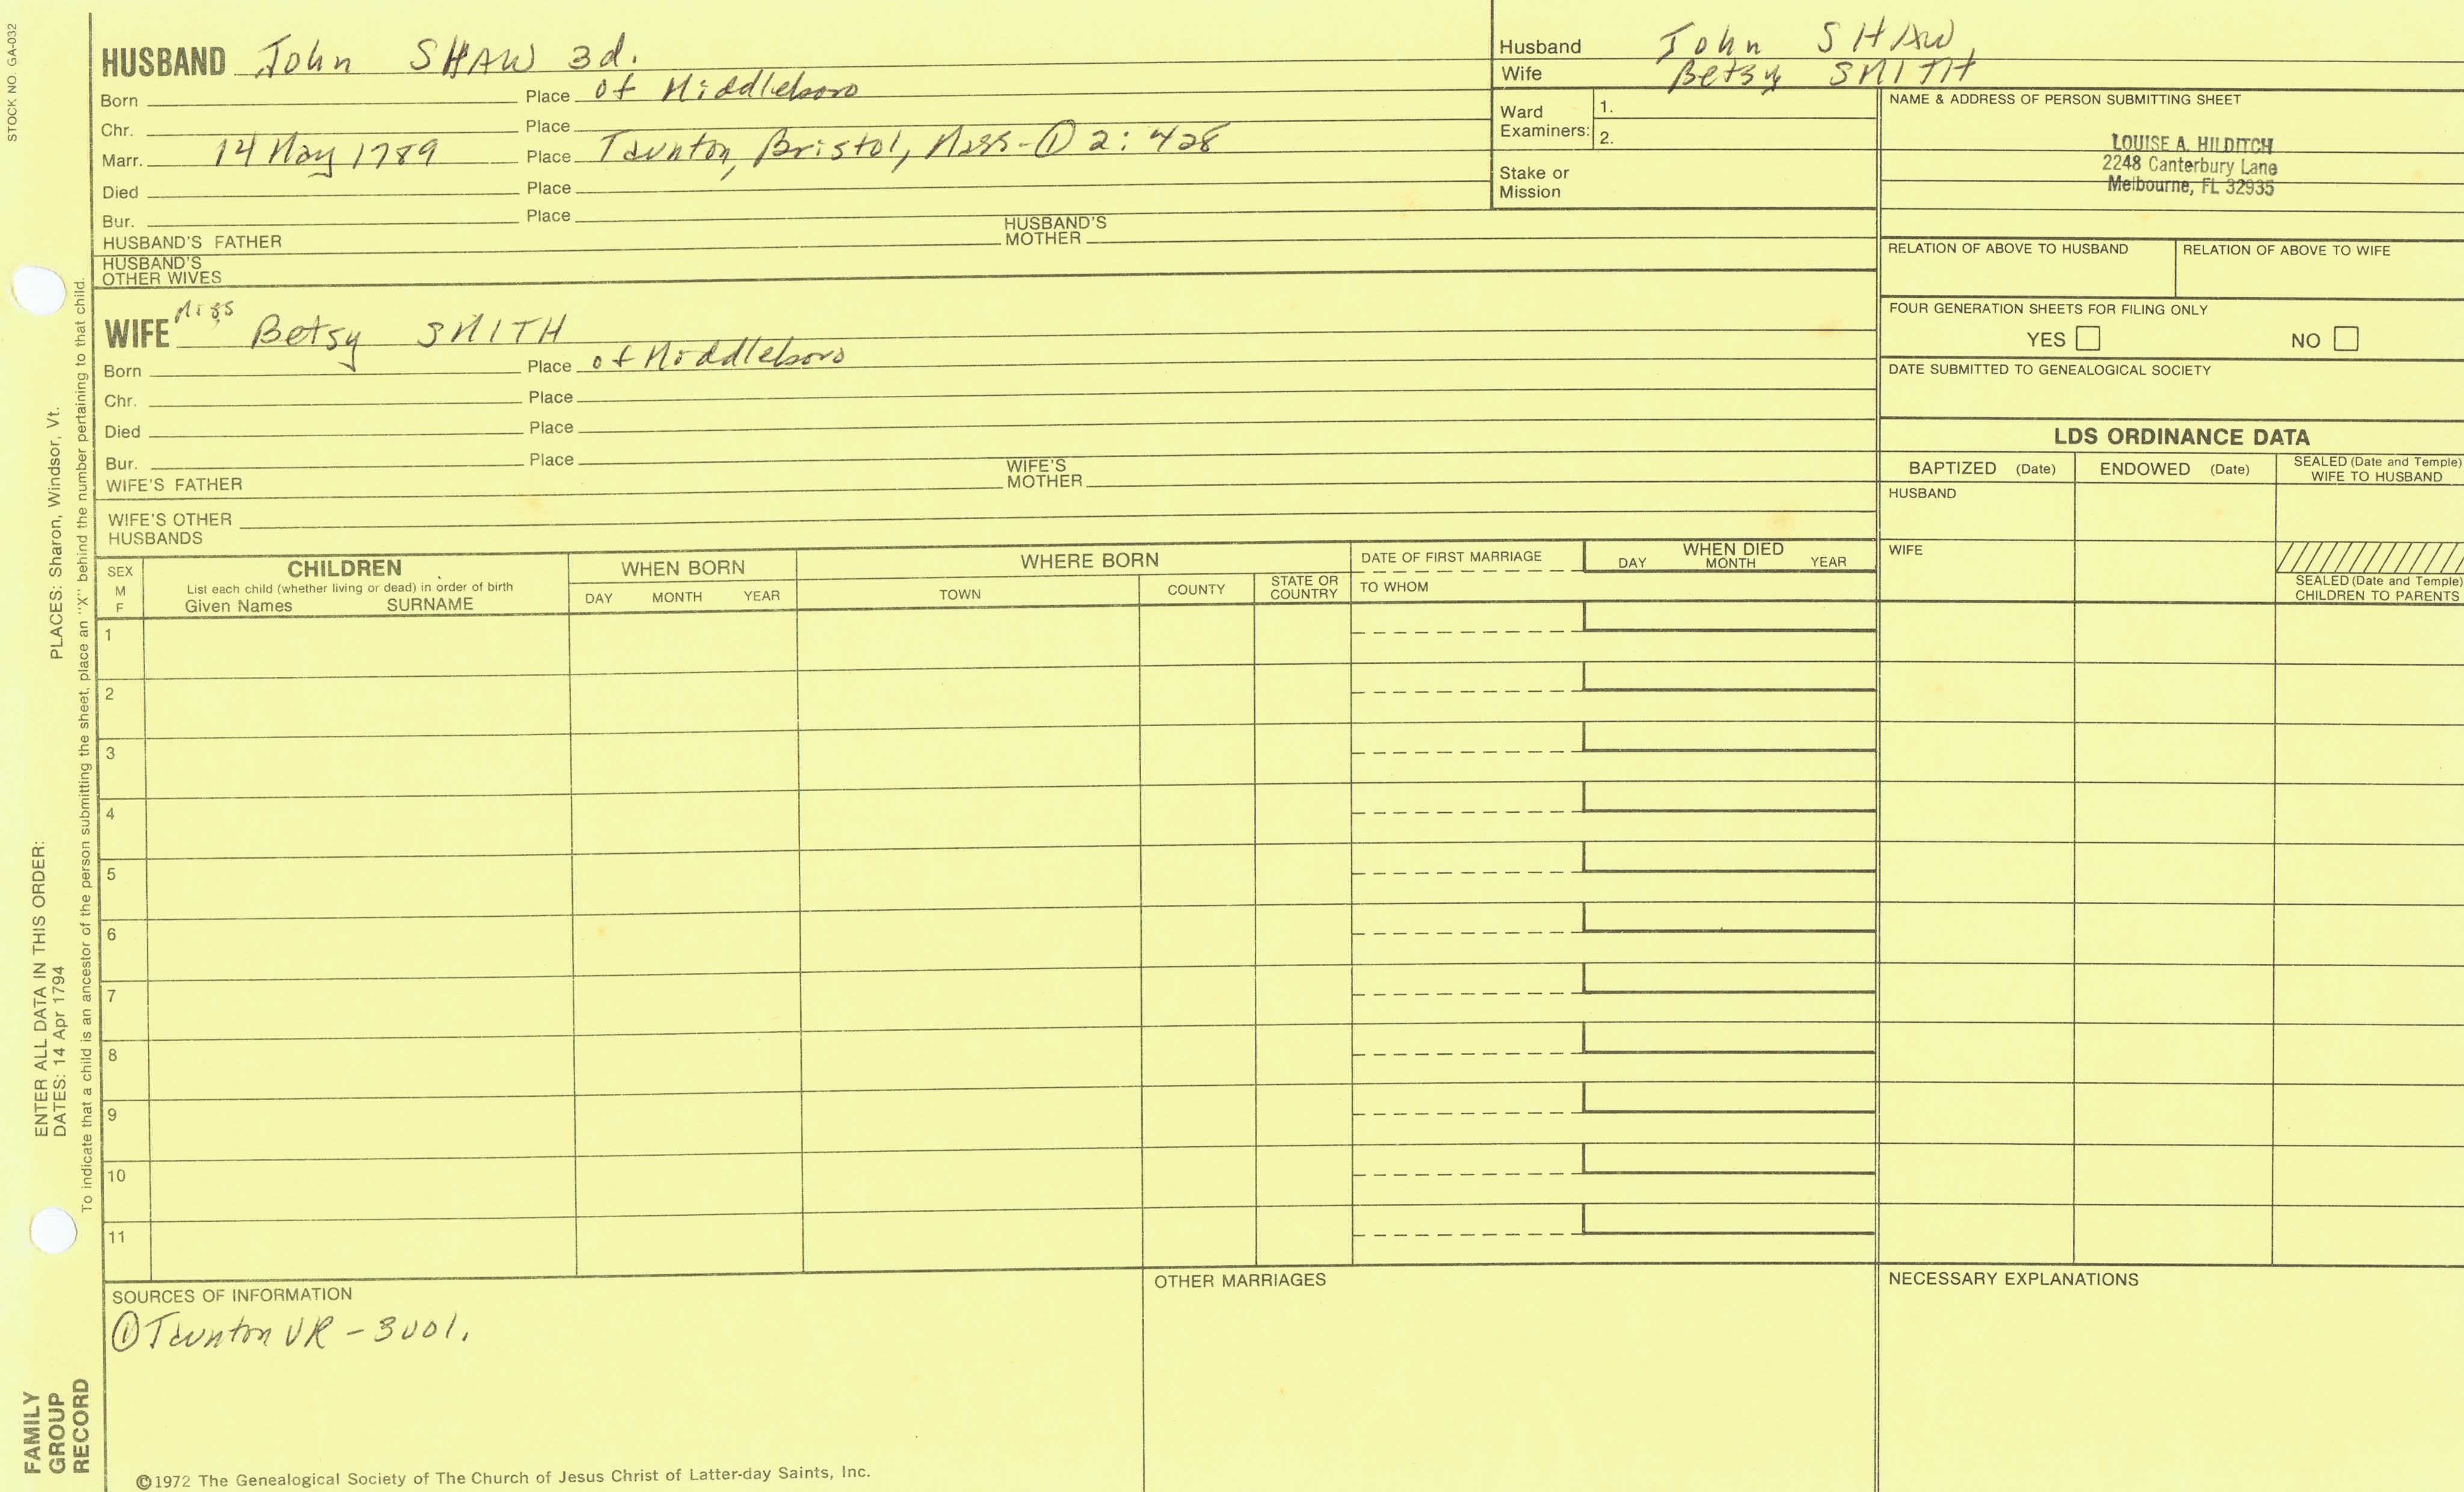 STOCK NO. GA-032
HUSBAND John SHAW 3d.
Born Place of Middleboro
Chr. Place
Marr. 14 May 1789 Place Taunton, Bristol, Mass - ① 2: 428
Died Place
Bur. Place
HUSBAND'S FATHER HUSBAND'S MOTHER
HUSBAND'S OTHER WIVES
WIFE Miss Betsy SMITH
Born Place of Middleboro
Chr. Place
Died Place
Bur. Place
WIFE'S FATHER WIFE'S MOTHER
WIFE'S OTHER HUSBANDS
Husband John SHAW,
Wife Betsy SMITH
Ward Examiners: 1.
2.
Stake or Mission
NAME & ADDRESS OF PERSON SUBMITTING SHEET
LOUISE A. HILDITCH
2248 Canterbury Lane
Melbourne, FL 32935
RELATION OF ABOVE TO HUSBAND RELATION OF ABOVE TO WIFE
FOUR GENERATION SHEETS FOR FILING ONLY
YES NO
DATE SUBMITTED TO GENEALOGICAL SOCIETY
LDS ORDINANCE DATA
BAPTIZED (Date) ENDOWED (Date) SEALED (Date and Temple) WIFE TO HUSBAND
HUSBAND
WIFE
SEALED (Date and Temple) CHILDREN TO PARENTS
SEX M F
CHILDREN
List each child (whether living or dead) in order of birth
Given Names SURNAME
WHEN BORN
DAY MONTH YEAR
WHERE BORN
TOWN COUNTY STATE OR COUNTRY
DATE OF FIRST MARRIAGE
TO WHOM
WHEN DIED
DAY MONTH YEAR
1
2
3
4
5
6
7
8
9
10
11
SOURCES OF INFORMATION
① Taunton VR - 3 vol.
OTHER MARRIAGES
NECESSARY EXPLANATIONS
©1972 The Genealogical Society of The Church of Jesus Christ of Latter-day Saints, Inc.
ENTER ALL DATA IN THIS ORDER:
DATES: 14 Apr 1794 PLACES: Sharon, Windsor, Vt.
To indicate that a child is an ancestor of the person submitting the sheet, place an "X" behind the number pertaining to that child.
FAMILY
GROUP
RECORD